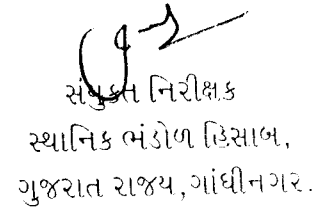 સંયુક્ત નિરીક્ષક
સ્થાનિક ભંડોળ હિસાબ,
ગુજરાત રાજય,ગાંધીનગર.